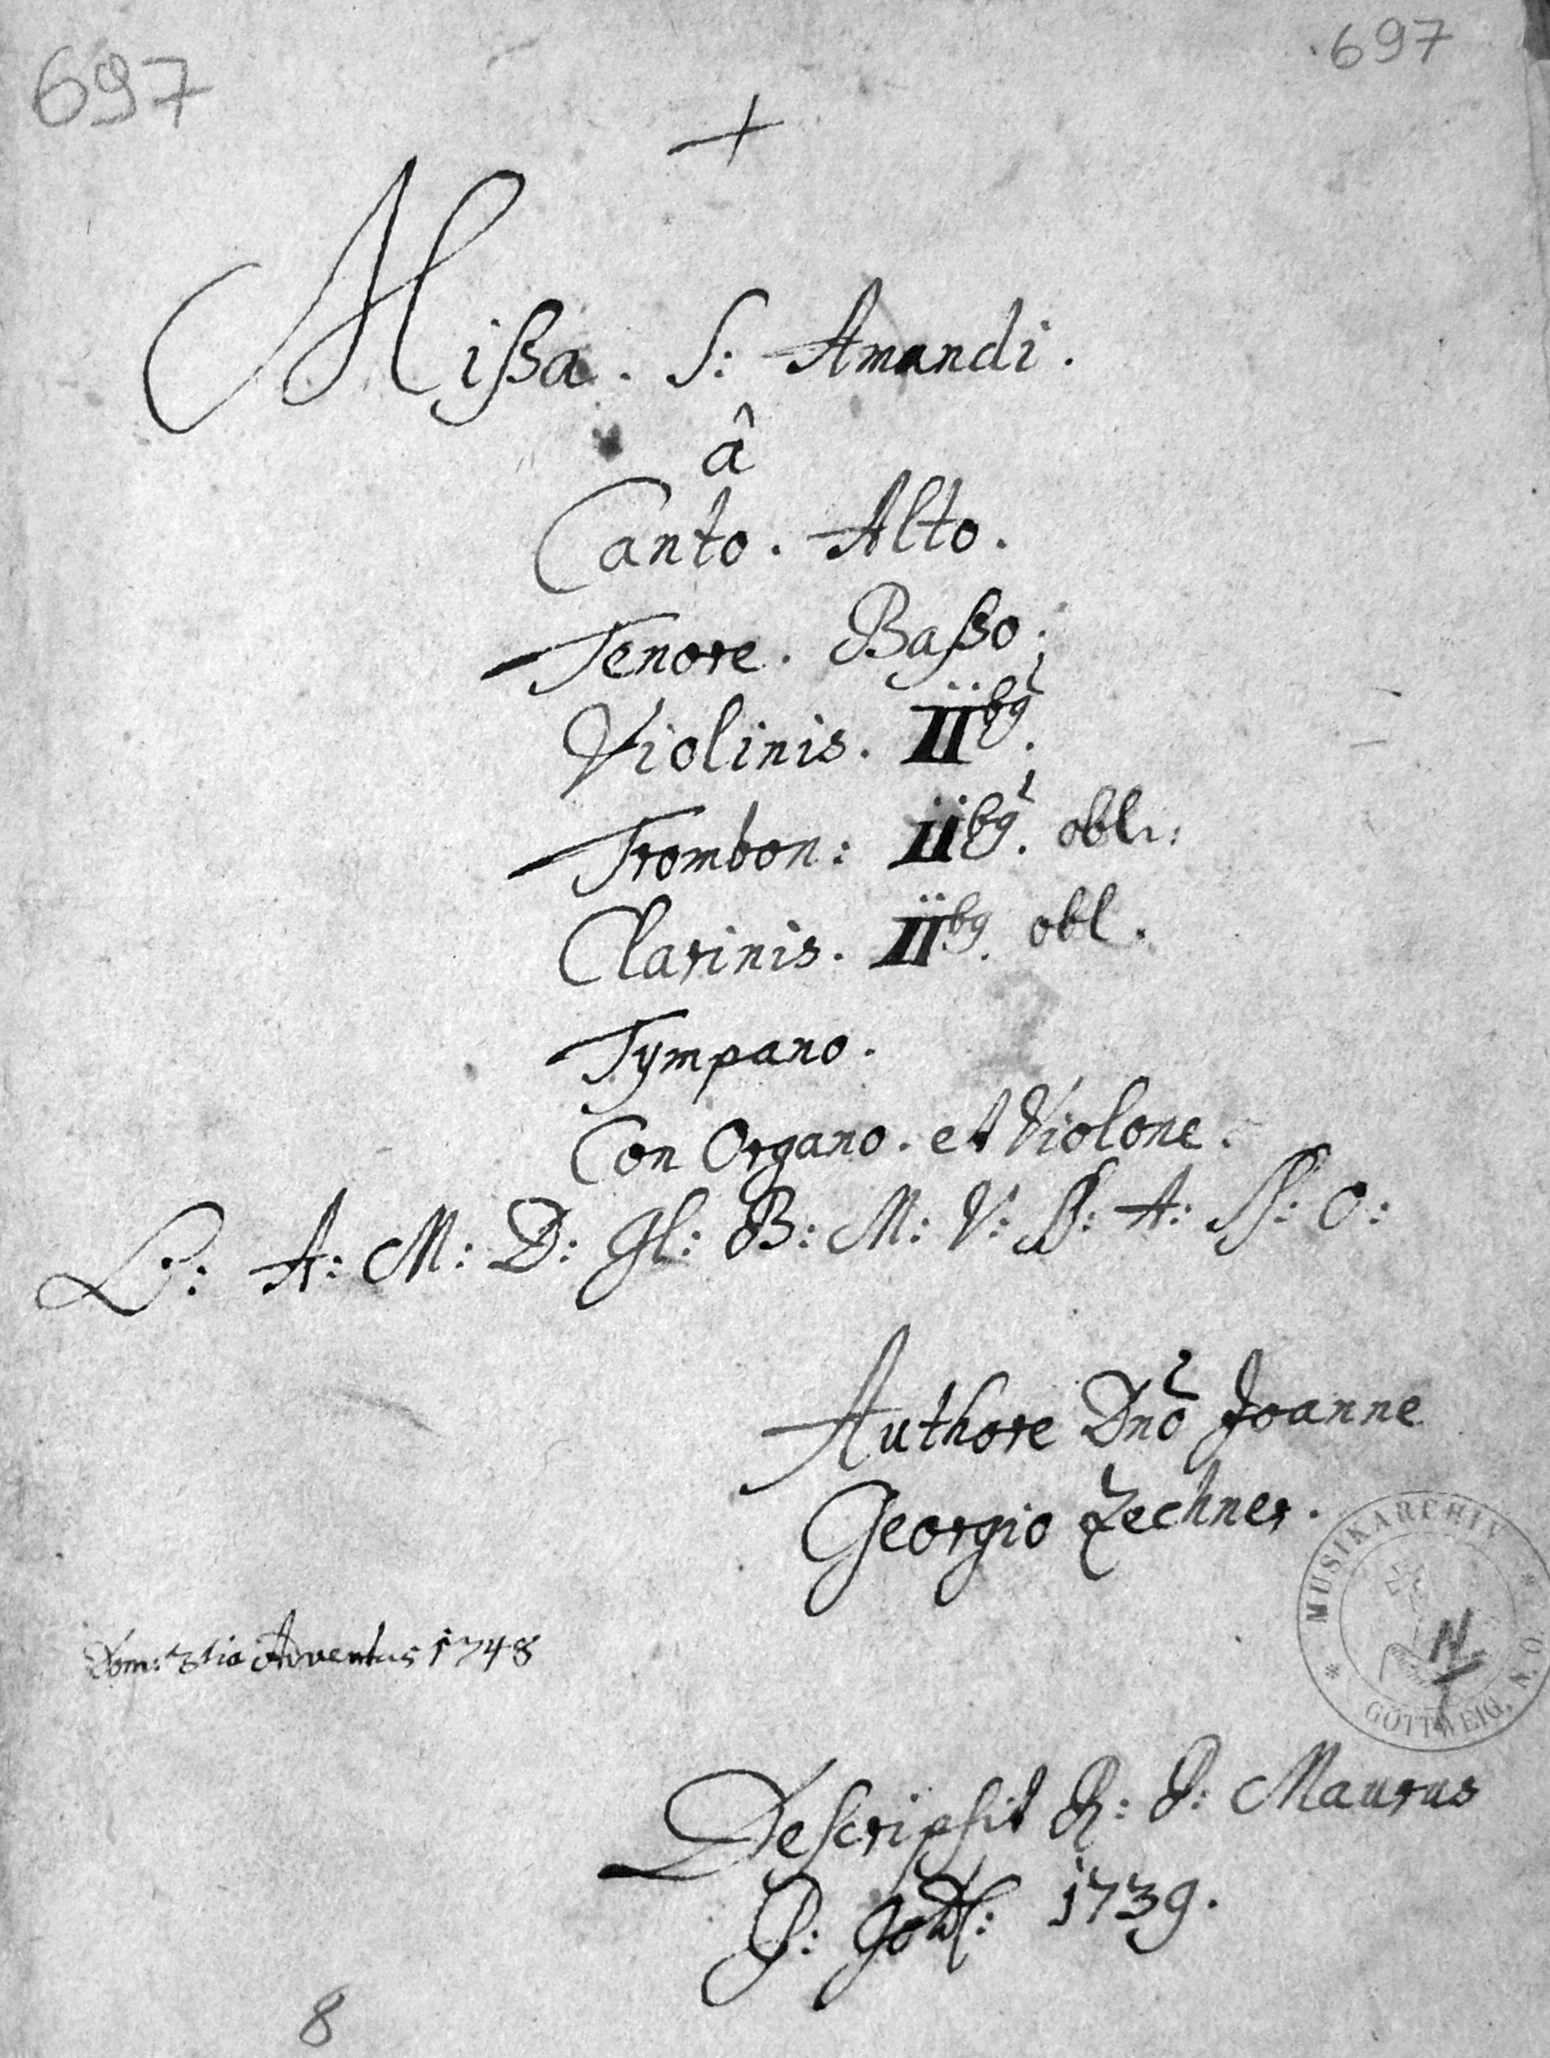 697
.697
+
Missa. S: Amandi.
â
Canto. Alto.
Tenore. Basso.
Violinis. II bg.
Trombon: II bg. obli:
Clarinis. II bg. obl.
Tympano.
Con Organo. et Violone.
O: A: M: D: Gl: B: M: V: SS: A: SS: O:
Authore Dnõ Joanne
Georgio Zechner.
MUSIKARCHIV
GÖTTWEIG, N. Ö.
Dom: 3tia Adventus 1748
Descripsit R: P: Maurus
P: Gottw: 1739.
8